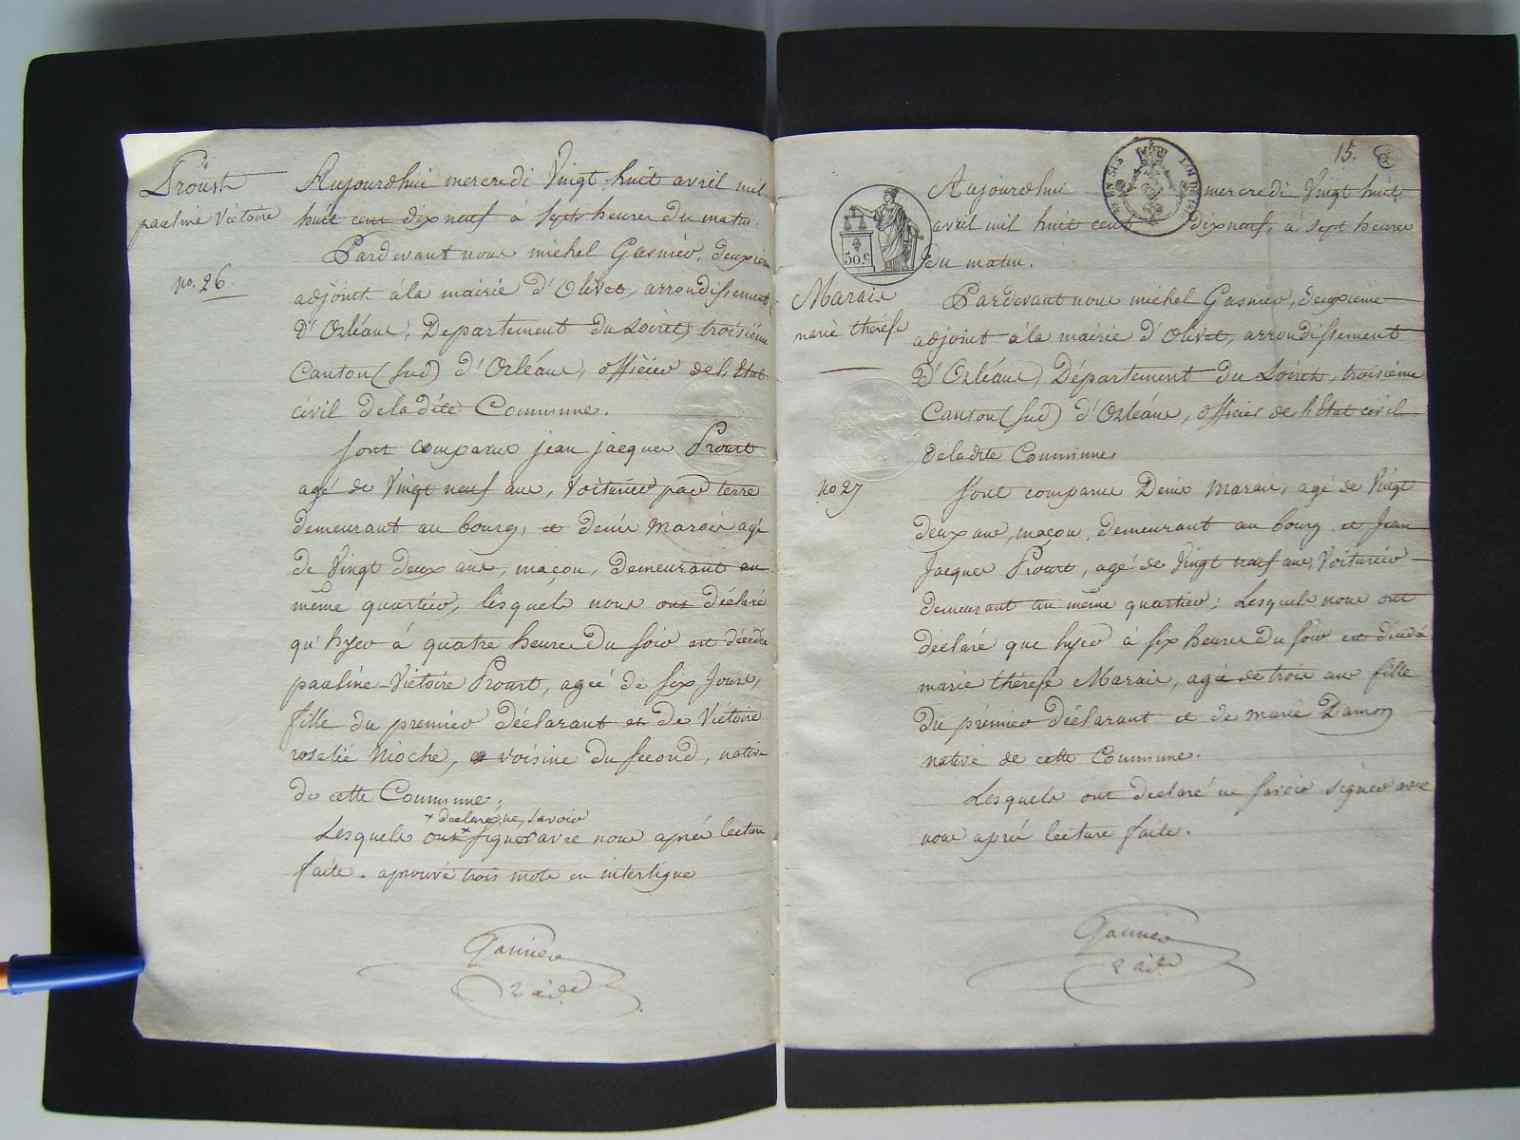 Proust
pauline Victoire
no. 26
Aujourdhui mercredi Vingt huit avril mil
huit cent dix neuf à Sept heures du matin.
Pardevant nous michel Gasnier, deuxième
adjoint à la mairie d'Olivet, arrondissement
D'Orléans, Département du Loiret, troisième
Canton (Sud) d'Orléans, officier de l'Etat
civil de la dite Commune.
Sont comparus jean jacques Proust
agé de Vingt neuf ans, Voiturier par terre
demeurant au bourg, et denis Marais agé
de Vingt deux ans, maçon, demeurant au
même quartier, lesquels nous ont déclaré
qu'hyer à quatre heures du soir est décédée
pauline Victoire Proust, agée de six Jours,
fille du premier déclarant et de Victoire
rosalie Nioche, voisine du second, native
de cette Commune.
+ declaré ne savoir
Lesquels ont + signer avec nous après lecture
faite. aprouvé trois mots en interligne
Gasnier
2 adj.
15.
50 c
Aujourdhui mercredi Vingt huit
avril mil huit cent dix neuf, à sept heures
du matin.
Marais
marie thérèse
no 27
Pardevant nous michel Gasnier, deuxième
adjoint à la mairie d'Olivet, arrondissement
D'Orléans, Département du Loiret, troisième
Canton (Sud) d'Orléans, officier de l'Etat civil
de la dite Commune
Sont comparus Denis Marais, agé de Vingt
deux ans, maçon, demeurant au bourg et Jean
Jacques Proust, agé de Vingt neuf ans, Voiturier
demeurant au même quartier; Lesquels nous ont
déclaré que hyer à six heures du soir est décédée
marie thérèse Marais, agée de trois ans fille
du prémier déclarant et de marie Damon
native de cette Commune.
Lesquels ont declaré ne savoir signer avec
nous après lecture faite.
Gasnier
2 adj.